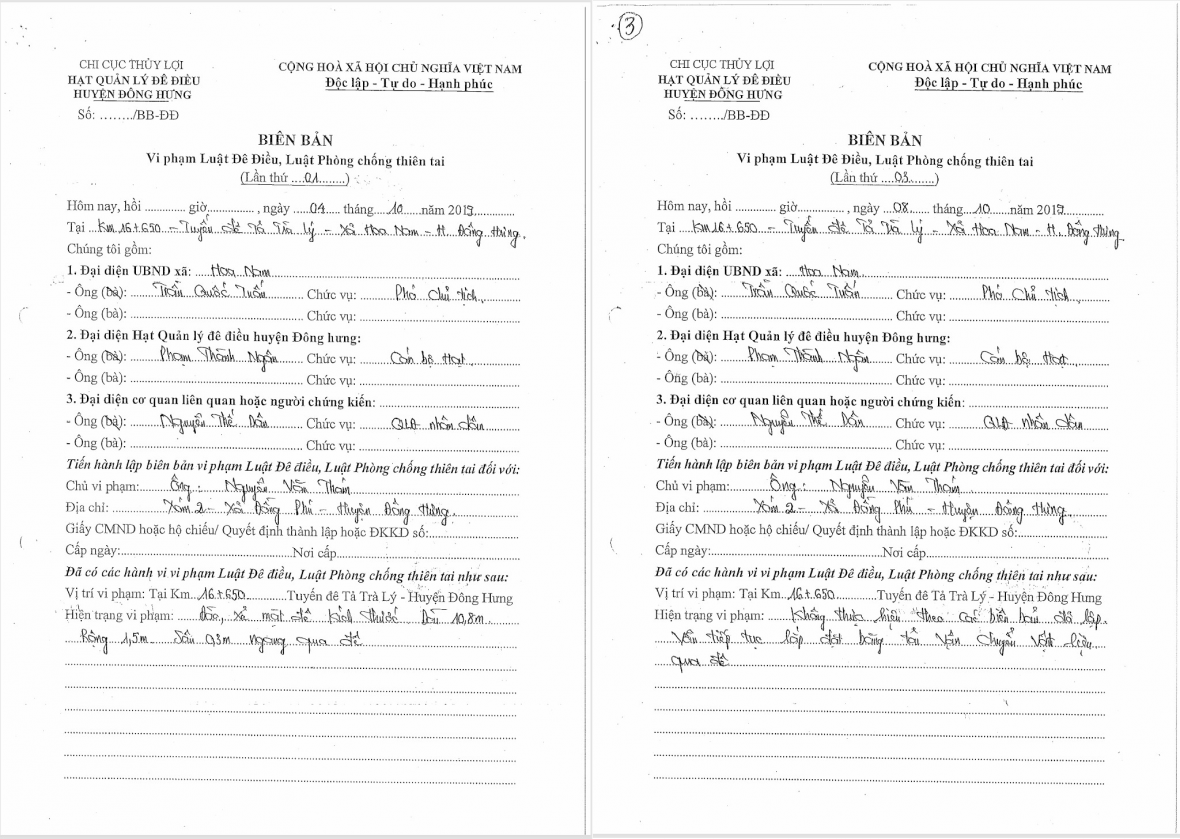 CHI CỤC THỦY LỢI
HẠT QUẢN LÝ ĐÊ ĐIỀU
HUYỆN ĐÔNG HƯNG
Số: ......../BB-ĐĐ
CỘNG HOÀ XÃ HỘI CHỦ NGHĨA VIỆT NAM
Độc lập - Tự do - Hạnh phúc
BIÊN BẢN
Vi phạm Luật Đê Điều, Luật Phòng chống thiên tai
(Lần thứ ....01........)
Hôm nay, hồi ............. giờ................, ngày .....04..... tháng....10......năm 2019............
Tại ...Km 16+650 - Tuyến đê Tả Trà lý - Xã Hoa Nam - H. Đông Hưng.
Chúng tôi gồm:
1. Đại diện UBND xã: ....Hoa Nam............
- Ông (bà): ......Trần Quốc Tuấn............ Chức vụ: .........Phó Chủ tịch.........
- Ông (bà): ............................................. Chức vụ: ..........................................
2. Đại diện Hạt Quản lý đê điều huyện Đông hưng:
- Ông (bà): .......Phạm Thành Ngân.... Chức vụ: ........Cán bộ Hạt.........
- Ông (bà): ............................................. Chức vụ: ..........................................
3. Đại diện cơ quan liên quan hoặc người chứng kiến: ....................................
- Ông (bà): .......Nguyễn Thế Dân........ Chức vụ: ........QLĐ nhân dân.......
- Ông (bà): ............................................. Chức vụ: ..........................................
Tiến hành lập biên bản vi phạm Luật Đê điều, Luật Phòng chống thiên tai đối với:
Chủ vi phạm:.......Ông: Nguyễn Văn Thám............
Địa chỉ: ........Xóm 2 - Xã Đông Phú - Huyện Đông Hưng.
Giấy CMND hoặc hộ chiếu/ Quyết định thành lập hoặc ĐKKD số:......................
Cấp ngày:...........................................Nơi cấp.............................................
Đã có các hành vi vi phạm Luật Đê điều, Luật Phòng chống thiên tai như sau:
Vị trí vi phạm: Tại Km...16+650............Tuyến đê Tả Trà Lý - Huyện Đông Hưng
Hiện trạng vi phạm: ......Đào, xẻ mặt đê kích thước Dài 10,8m.
Rộng 1,5m Sâu 0,3m ngang qua đê
3
CHI CỤC THỦY LỢI
HẠT QUẢN LÝ ĐÊ ĐIỀU
HUYỆN ĐÔNG HƯNG
Số: ......../BB-ĐĐ
CỘNG HOÀ XÃ HỘI CHỦ NGHĨA VIỆT NAM
Độc lập - Tự do - Hạnh phúc
BIÊN BẢN
Vi phạm Luật Đê Điều, Luật Phòng chống thiên tai
(Lần thứ ....03........)
Hôm nay, hồi ............. giờ................, ngày ....08...... tháng....10......năm 2019............
Tại ...Km 16+650 - Tuyến đê Tả Trà lý - Xã Hoa Nam - H. Đông Hưng
Chúng tôi gồm:
1. Đại diện UBND xã: ....Hoa Nam............
- Ông (bà): ......Trần Quốc Tuấn............ Chức vụ: .........Phó Chủ tịch.........
- Ông (bà): ............................................. Chức vụ: ..........................................
2. Đại diện Hạt Quản lý đê điều huyện Đông hưng:
- Ông (bà): .......Phạm Thành Ngân.... Chức vụ: ........Cán bộ Hạt.........
- Ông (bà): ............................................. Chức vụ: ..........................................
3. Đại diện cơ quan liên quan hoặc người chứng kiến: ....................................
- Ông (bà): .......Nguyễn Thế Dân........ Chức vụ: ........QLĐ nhân dân.......
- Ông (bà): ............................................. Chức vụ: ..........................................
Tiến hành lập biên bản vi phạm Luật Đê điều, Luật Phòng chống thiên tai đối với:
Chủ vi phạm:.......Ông: Nguyễn Văn Thám............
Địa chỉ: ........Xóm 2 - Xã Đông Phú - Huyện Đông Hưng.
Giấy CMND hoặc hộ chiếu/ Quyết định thành lập hoặc ĐKKD số:......................
Cấp ngày:...........................................Nơi cấp.............................................
Đã có các hành vi vi phạm Luật Đê điều, Luật Phòng chống thiên tai như sau:
Vị trí vi phạm: Tại Km...16+650............Tuyến đê Tả Trà Lý - Huyện Đông Hưng
Hiện trạng vi phạm: ......Không thực hiện theo các biên bản đã lập.
Vẫn tiếp tục lắp đặt băng tải vận chuyển vật liệu
qua đê